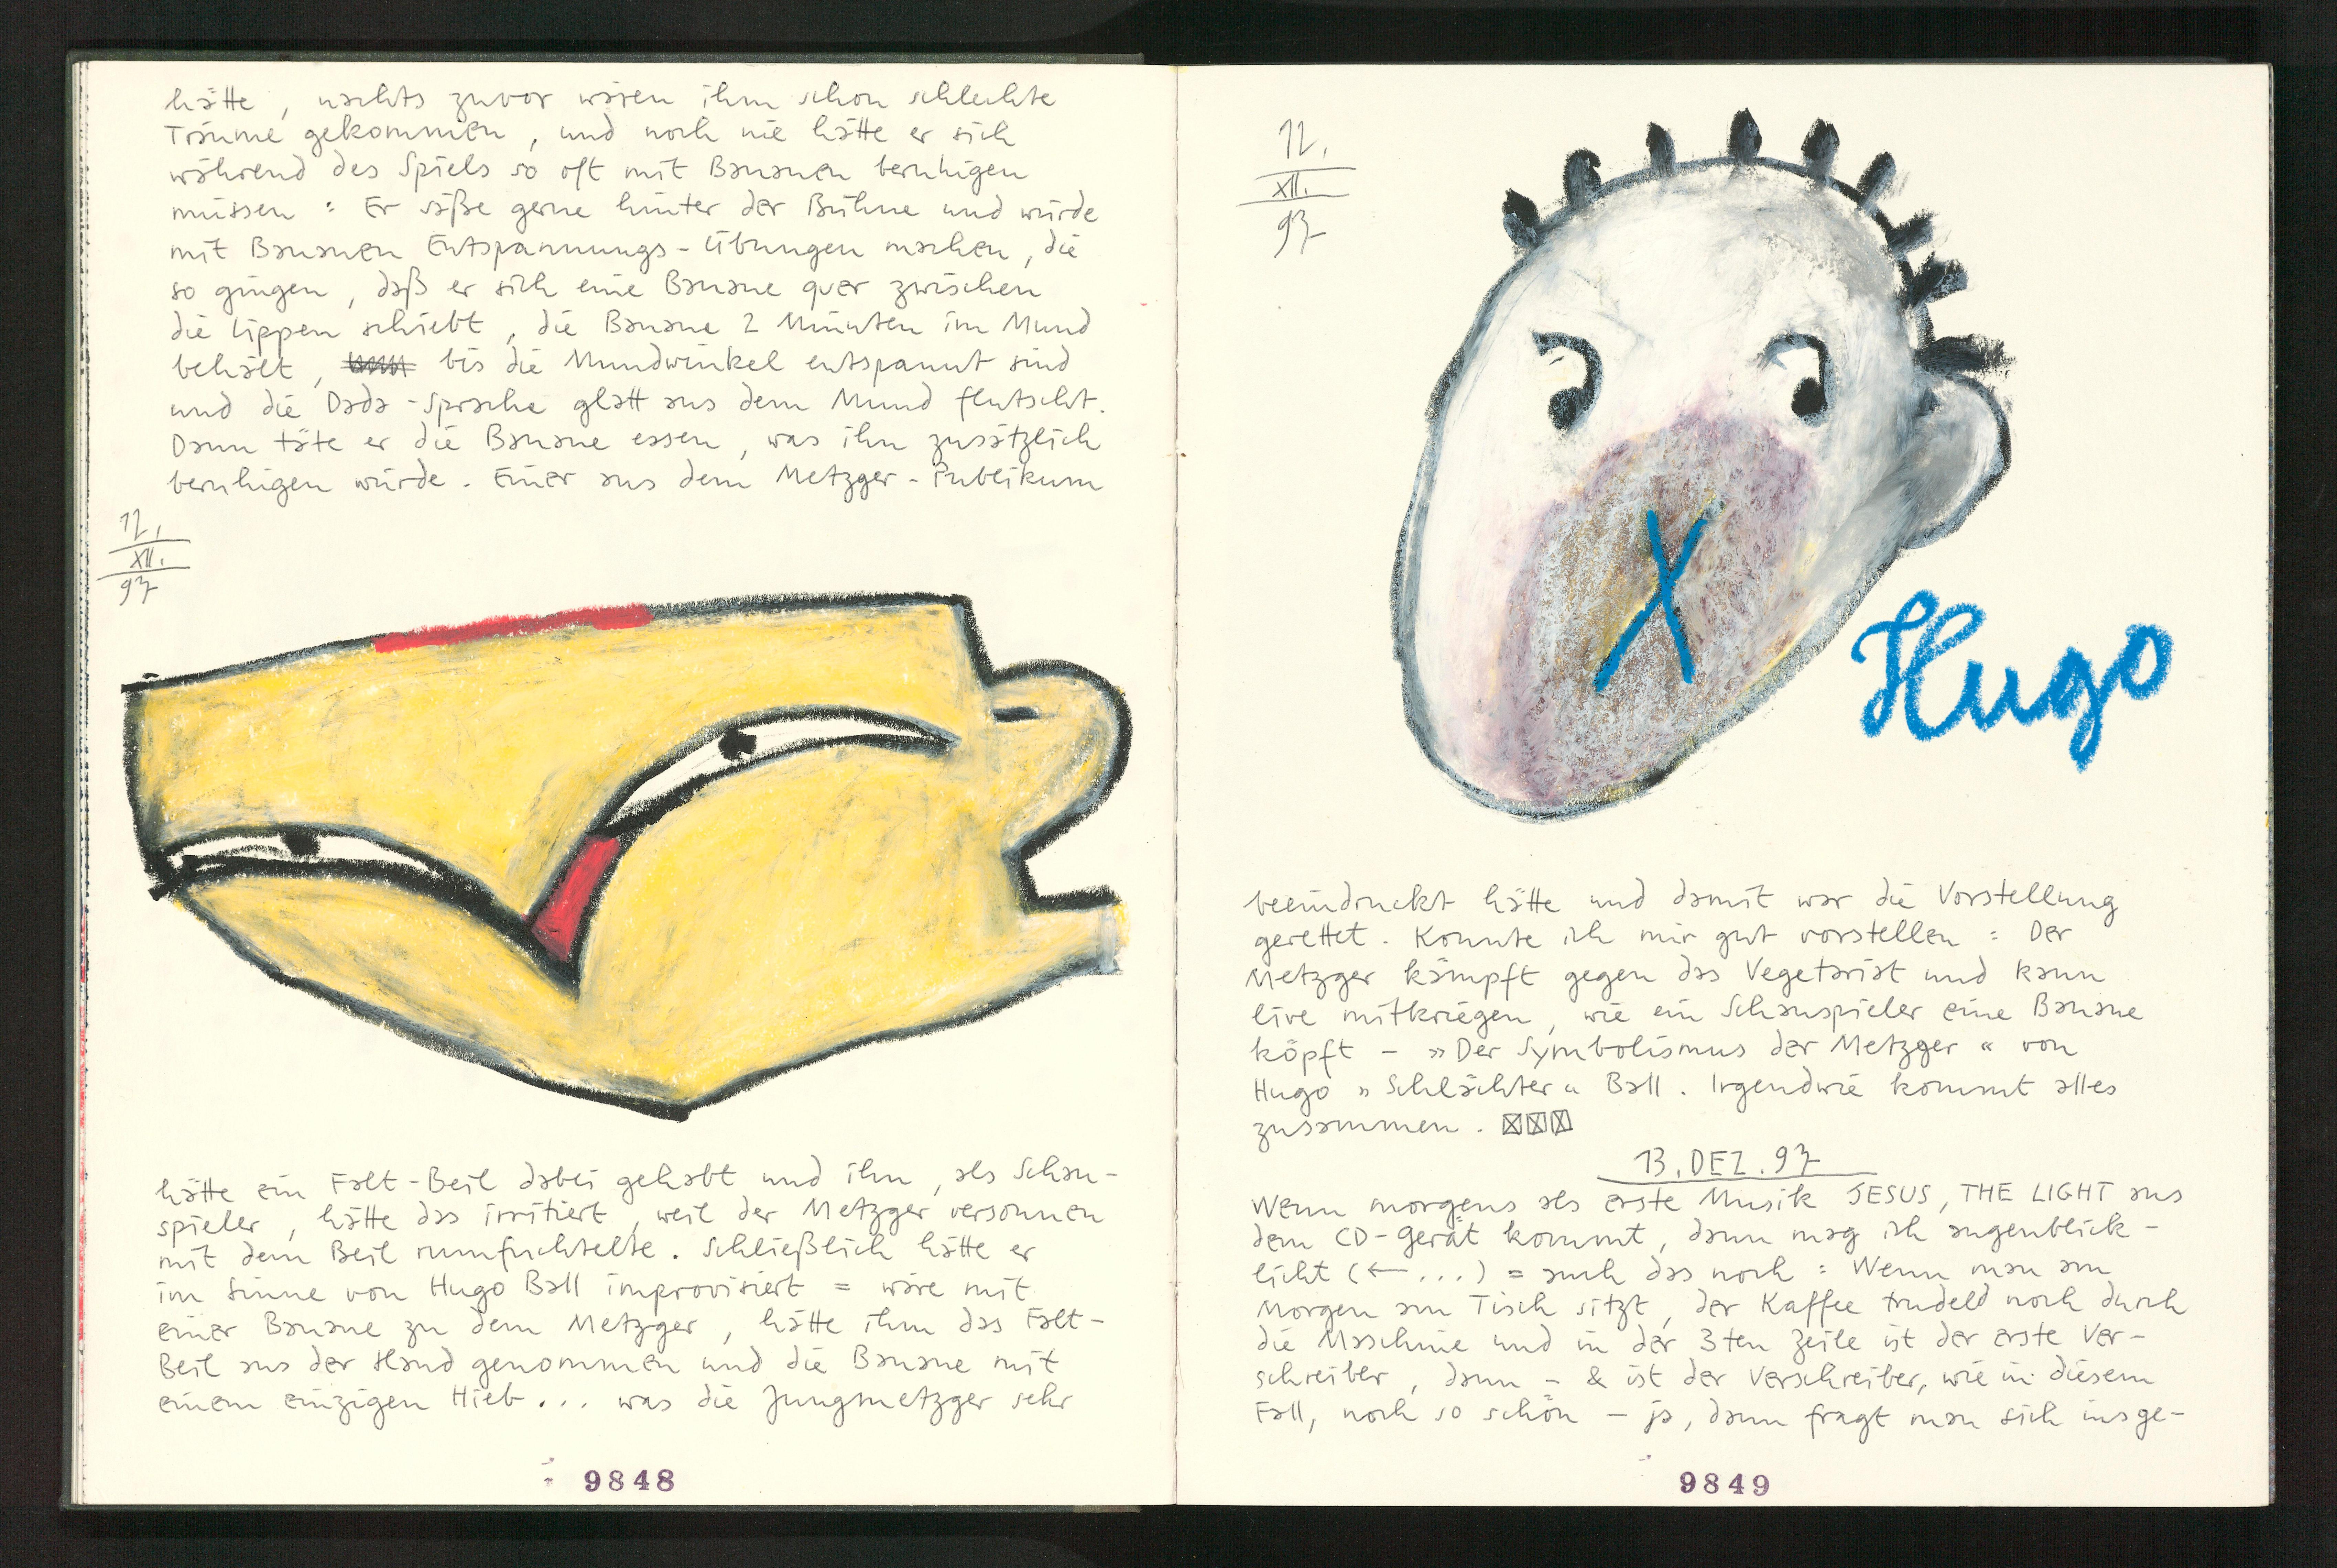 hätte, nachts zuvor wären ihm schon schlechte
Träume gekommen, und noch nie hätte er sich
während des Spiels so oft mit Bananen beruhigen
müssen: Er säße gerne hinter der Bühne und würde
mit Bananen Entspannungs-Übungen machen, die
so gingen, daß er sich eine Banane quer zwischen
die Lippen schiebt, die Banane 2 Minuten im Mund
behält, bis die Mundwinkel entspannt sind
und die Dada-Sprache glatt aus dem Mund flutscht.
Dann täte er die Banane essen, was ihn zusätzlich
beruhigen würde. Einer aus dem Metzger-Publikum
12.
XII.
97
hätte ein Falt-Beil dabei gehabt und ihn, als Schau-
spieler, hätte das irritiert, weil der Metzger versonnen
mit dem Beil rumfuchtelte. Schließlich hätte er
im Sinne von Hugo Ball improvisiert = wäre mit
einer Banane zu dem Metzger, hätte ihm das Falt-
Beil aus der Hand genommen und die Banane mit
einem einzigen Hieb... was die Jungmetzger sehr
9848
12.
XII.
97
X
Hugo
beeindruckt hätte und damit war die Vorstellung
gerettet. Konnte ich mir gut vorstellen: Der
Metzger kämpft gegen das Vegetariat und kann
live mitkriegen, wie ein Schauspieler eine Banane
köpft – »Der Symbolismus der Metzger« von
Hugo »Schlächter« Ball. Irgendwie kommt alles
zusammen. ☒☒☒
13. DEZ. 97
Wenn morgens als erste Musik JESUS, THE LIGHT aus
dem CD-Gerät kommt, dann mag ich augenblick-
licht (←...) = auch das noch: Wenn man am
Morgen am Tisch sitzt, der Kaffee trudeld noch durch
die Maschine und in der 3ten Zeile ist der erste Ver-
schreiber, dann – & ist der Verschreiber, wie in diesem
Fall, noch so schön – ja, dann fragt man sich insge-
9849